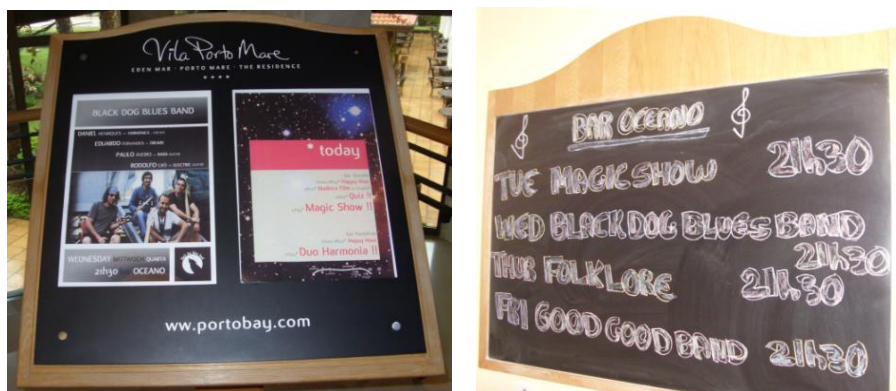 Vila Porto Mare
EDEN MAR · PORTO MARE · THE RESIDENCE
BLACK DOG BLUES BAND
DANIEL
EDUARDO
PAULO
RODOLFO
WEDNESDAY MITTWOCH QUARTA
21h30 OCEANO
* today
Happy Hour
Madeira Film
Quiz !!
Magic Show !!
Happy Hour
Duo Harmonia !!
ww.portobay.com
BAR OCEANO
TUE MAGIC SHOW 21h30
WED BLACK DOG BLUES BAND
21h30
THUR FOLKLORE 21h30
FRI GOOD GOOD BAND 21h30